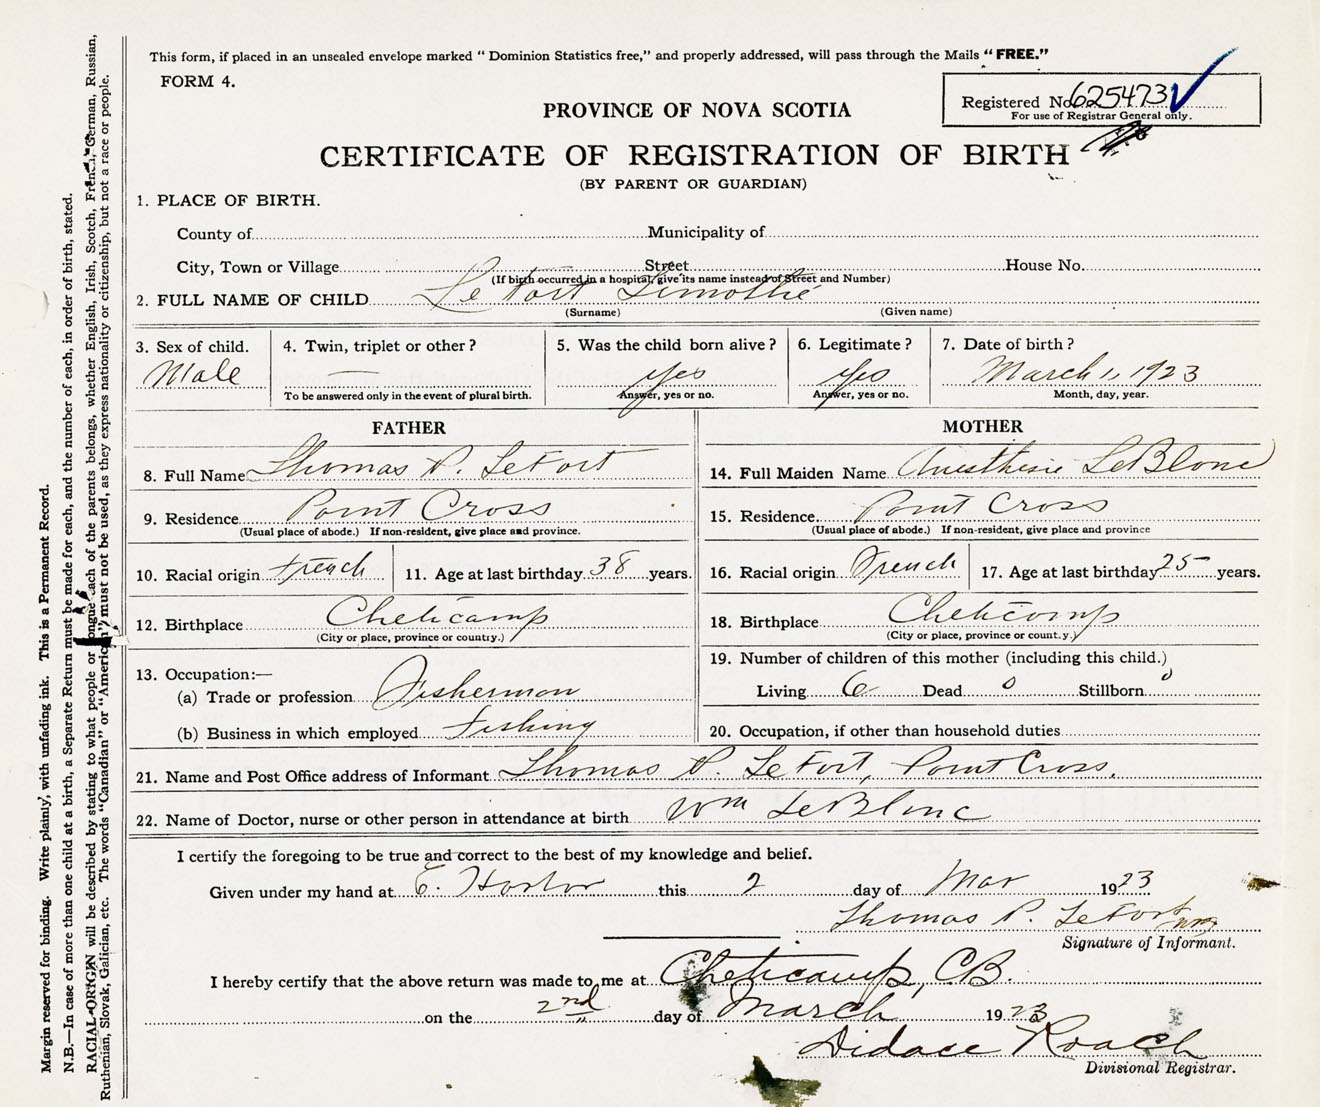 This form, if placed in an unsealed envelope marked " Dominion Statistics free," and properly addressed, will pass through the Mails "FREE."
FORM 4.
Registered No. 625473
For use of Registrar General only.
PROVINCE OF NOVA SCOTIA
CERTIFICATE OF REGISTRATION OF BIRTH
(BY PARENT OR GUARDIAN)
1. PLACE OF BIRTH.
County of Municipality of
City, Town or Village Street House No.
(If birth occurred in a hospital, give its name instead of Street and Number)
2. FULL NAME OF CHILD Le Fort Timothie
(Surname) (Given name)
3. Sex of child. 4. Twin, triplet or other? 5. Was the child born alive? 6. Legitimate? 7. Date of birth?
Male — yes yes March 1, 1923
To be answered only in the event of plural birth. Answer, yes or no. Answer, yes or no. Month, day, year.
FATHER
8. Full Name Thomas P. LeFort
9. Residence Point Cross
(Usual place of abode.) If non-resident, give place and province.
10. Racial origin French 11. Age at last birthday 38 years.
12. Birthplace Cheticamp
(City or place, province or country.)
13. Occupation:—
(a) Trade or profession Fisherman
(b) Business in which employed Fishing
MOTHER
14. Full Maiden Name Anesthesie LeBlanc
15. Residence Point Cross
(Usual place of abode.) If non-resident, give place and province
16. Racial origin French 17. Age at last birthday 25 years.
18. Birthplace Cheticamp
(City or place, province or country.)
19. Number of children of this mother (including this child.)
Living 6 Dead 0 Stillborn 0
20. Occupation, if other than household duties
21. Name and Post Office address of Informant Thomas P. LeFort, Point Cross.
22. Name of Doctor, nurse or other person in attendance at birth Wm LeBlanc
I certify the foregoing to be true and correct to the best of my knowledge and belief.
Given under my hand at E. Harbor this 2 day of Mar 1923
Thomas P. LeFort
Signature of Informant.
I hereby certify that the above return was made to me at Cheticamp, C.B.
on the 2nd day of March 1923
Didace Roach
Divisional Registrar.
Margin reserved for binding. Write plainly, with unfading ink. This is a Permanent Record.
N.B.—In case of more than one child at a birth, a Separate Return must be made for each, and the number of each, in order of birth, stated.
RACIAL ORIGIN will be described by stating to what people or tongue each of the parents belongs, whether English, Irish, Scotch, French, German, Russian,
Ruthenian, Slovak, Galician, etc. The words "Canadian" or "American" must not be used, as they express nationality or citizenship, but not a race or people.